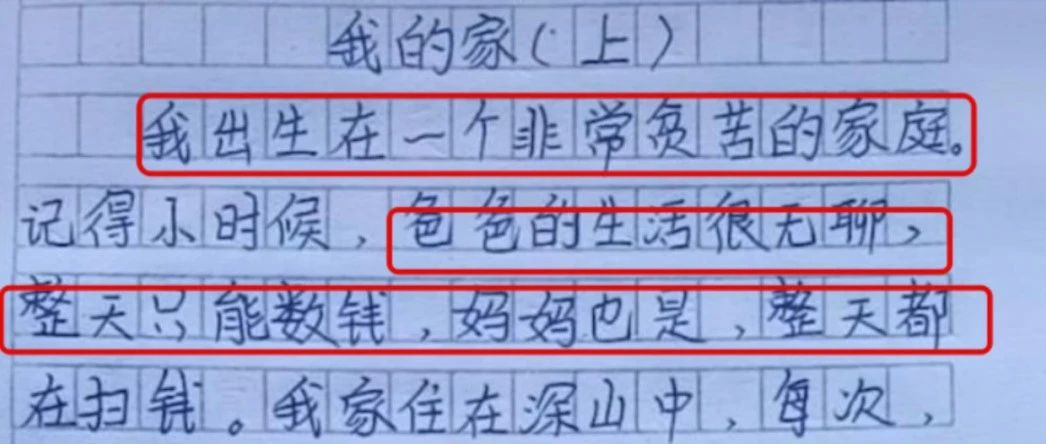 我的家(上)
我出生在一个非常贫苦的家庭。
记得小时候,爸爸的生活很无聊,
整天只能数钱,妈妈也是,整天都
在扫钱。我家住在深山中,每次,